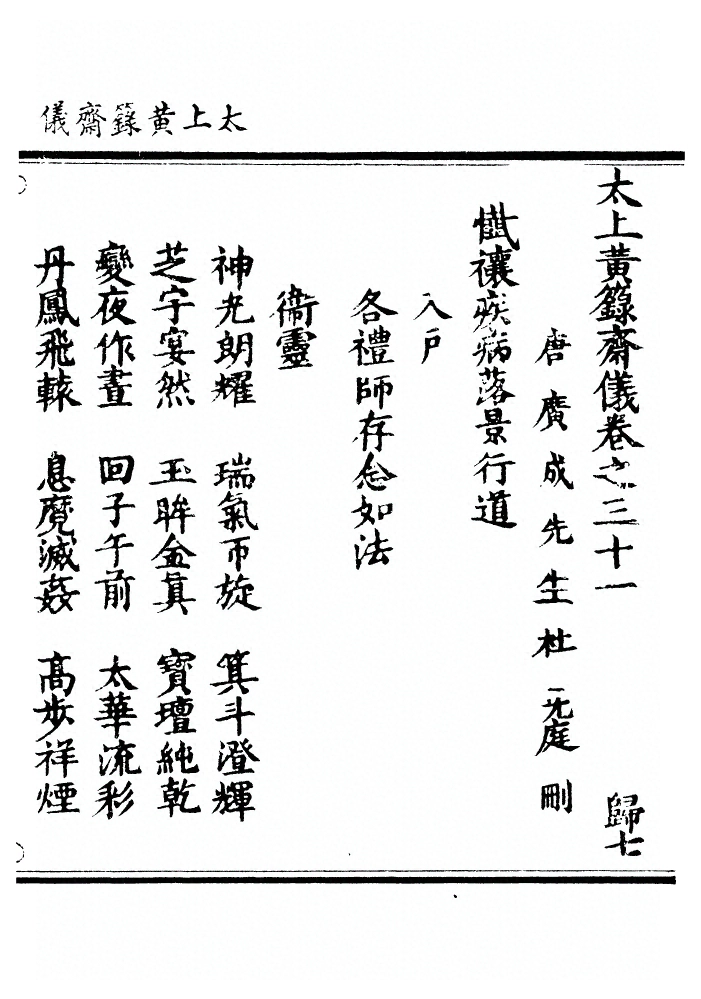 太上黃籙齋儀
太上黃籙齋儀卷之三十一 歸七
唐廣成先生杜光庭刪
懴禳疾病落景行道
入戶
各禮師存念如法
衛靈
神光朗耀 瑞氣帀旋 箕斗澄輝
芝宇宴然 玉眸金真 寶壇純乾
變夜作晝 回子午前 太華流彩
丹鳳飛轅 息魔滅姦 高步祥煙